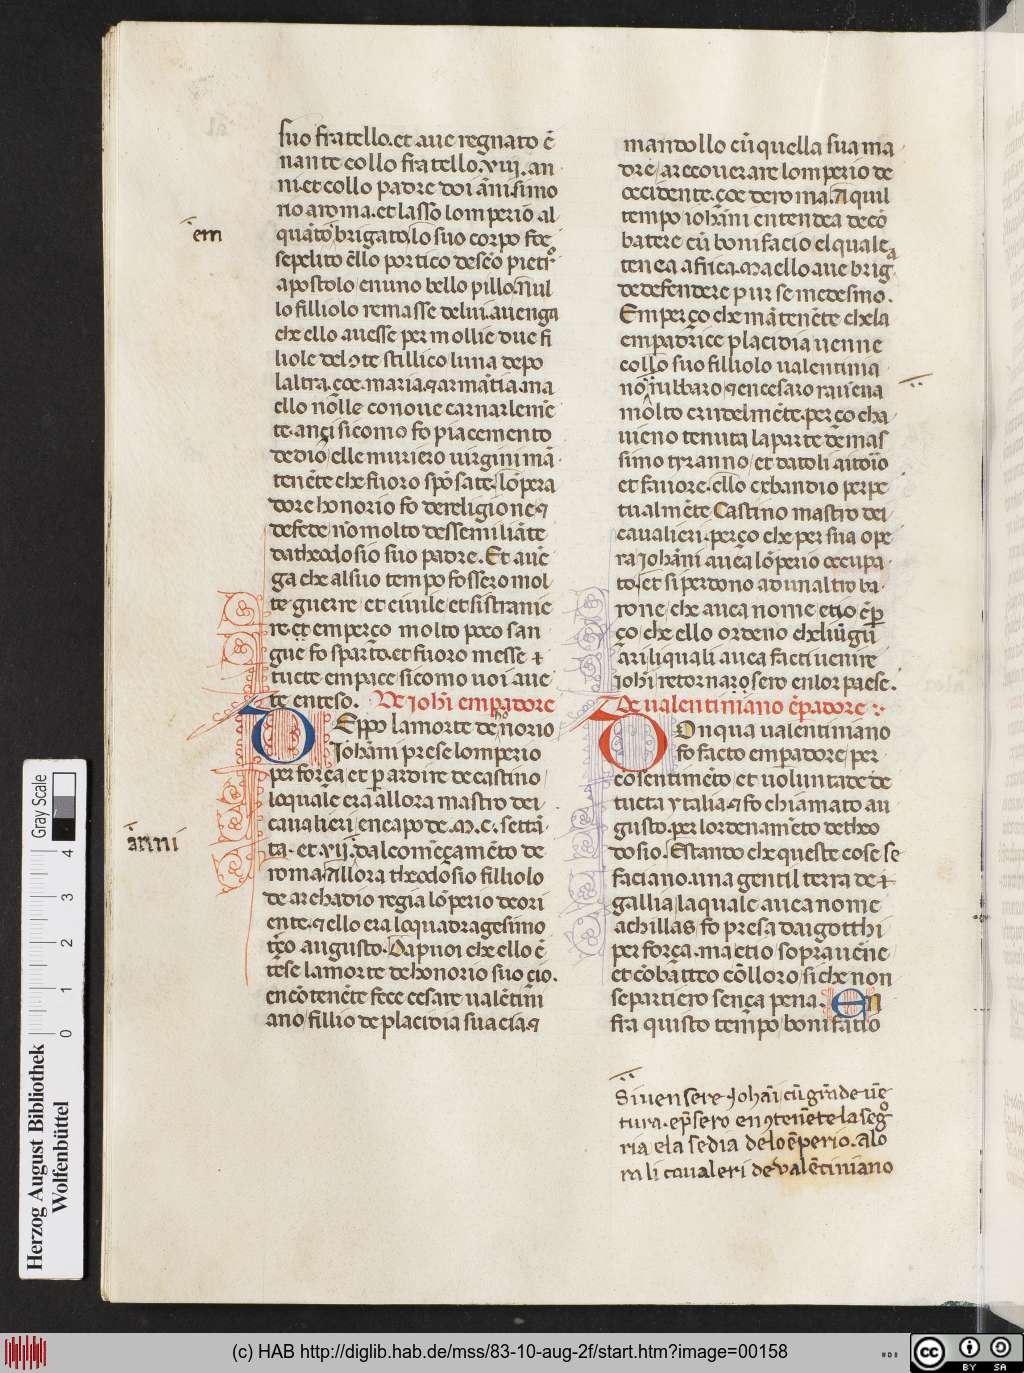 suo fratello. et aue regnato ē
nante collo fratello. xiij. an
ni. et collo padre doi ām. simo
rio a roma. et lasso lomperio al
em
quāto brigato, lo suo corpo foe
sepelito ēllo portico de sēo pietro
apostolo, en uno bello pillo. nul
lo filliolo remasse de lui. auenga
che ello auesse per mollie doe fi
liole de stillico luna depo
laltra. çoe. maria. ꝯ armātia. ma
ello nō lle conoue carnarlemē
te. angi sicomo fo piacemento
de dio, elle muriero uirgini mā
tenēte che fuoro spōsate. lōpera
dore honorio fo de religione ꝯ
de fede nō molto dessemiliāte
da theodosio suo padre. Et auē
ga che al suo tempo fossero mol
te guerre et ciuile et si stranie
re. et emperço molto poco san
gue fo sparto. et fuoro messe
tucte em pace sicomo uoi aue
te enteso. De johī empadore
Deppo la morte de honorio
Johāni prese lomperio
per força et p ardire de castino
loquale era allora mastro dei
caualieri en capo de .M.C. settā
ānni
ta. et xij. dal comēçamēto de
roma. Allora theodosio filliolo
de archadio regia lōperio de ori
ente. ꝯ ello era loquadragesimo
tēo augusto. Dapuoi che ello ē
tese la morte de honorio suo çio.
encōtenēte fece cesare ualētini
ano, fillio de placidia sua cia. ꝯ
mandollo cū quella sua ma
dre, a recouerare lomperio de
occidente. çoe de roma. A quil
tempo iohāni entendea de cō
batere cū bonifacio, el quale
tenea africa. Ma ello aue briga
de defendere pur se medesmo.
Emperço che mātenēte che la
empadrice placidia uenne
collo suo filliolo ualentinia
no, iubbaro ꝯ en cesaro rauēna
mōlto crudelmēte. perço cha
uieno tenuta la parte dēmas
simo tyranno, et datoli aitorio
et fauore. ello cebandio perpe
tualmēte Castino mastro dei
caualieri. perço che per sua ope
ra johāni auea lōperio occupa
to, et si perdono ad un altro ba
rone, che auea nome etio, ēp
ço, che ello ordeno che li ūgu
āri li quali auea facti uenire
iohī retornarosero en lor paese.
De ualentiniāno ēpadore
Donqua ualentiniano
fo facto empadore, per
cosentimēto et uoluntade de
tucta ytalia. ꝯ fo chiamato au
gusto. per lordenamēto de theo
dosio. Estando che queste cose se
faciano. una gentil terra de
gallia, la quale auea nome
achillas, fo presa dai gotthi
per força. ma etio soprauēne
et cōbatteo cō lloro, si che non
se partiero sença pena. En
fra quisto tempo, bonifatio
Si uensere Johāi cū grāde uē
tura. epsero en ꝯtenēte la segno
ria e la sedia de lo ēperio. Alo
ra li caualeri de valētiniano
Herzog August Bibliothek
Wolfenbüttel
0 1 2 3 4
Gray Scale
(c) HAB http://diglib.hab.de/mss/83-10-aug-2f/start.htm?image=00158
cc BY SA